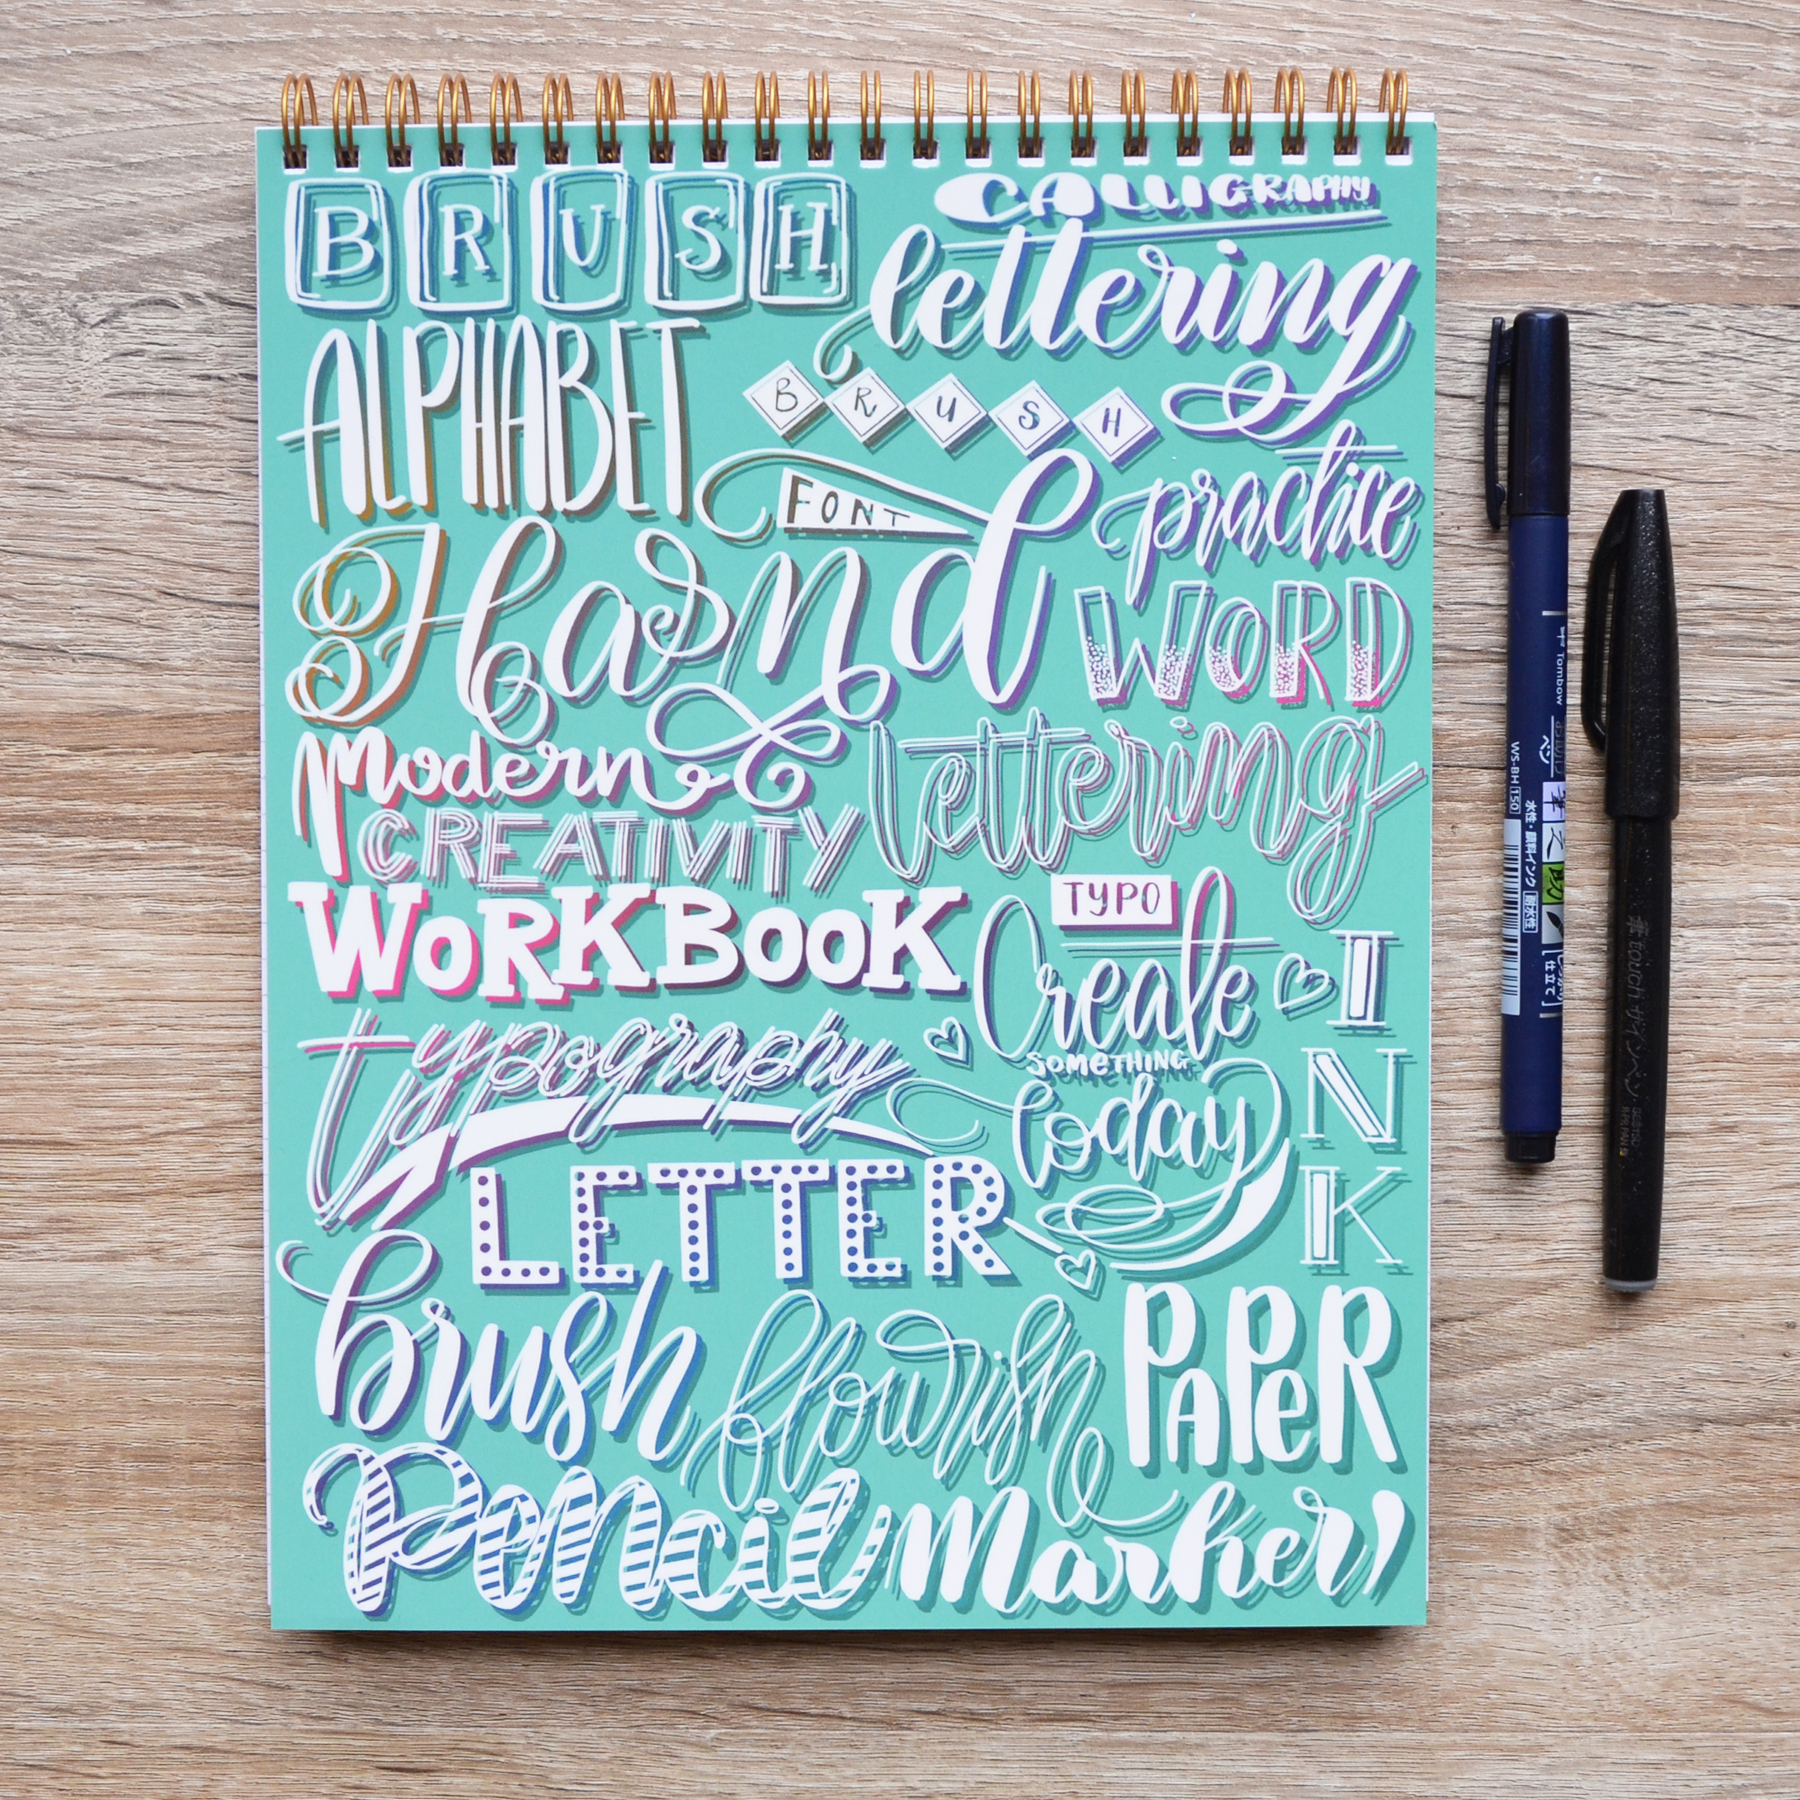 BRUSH
CALLIGRAPHY
lettering
ALPHABET
BRUSH
FONT
practice
Hand
WORD
modern
lettering
CREATIVITY
WORKBOOK
TYPO
Create
SOMETHING
today
INK
typography
LETTER
brush
flourish
PAPER
Pencil
marker
Tombow
WS-BH 150
水性
touch サインペン